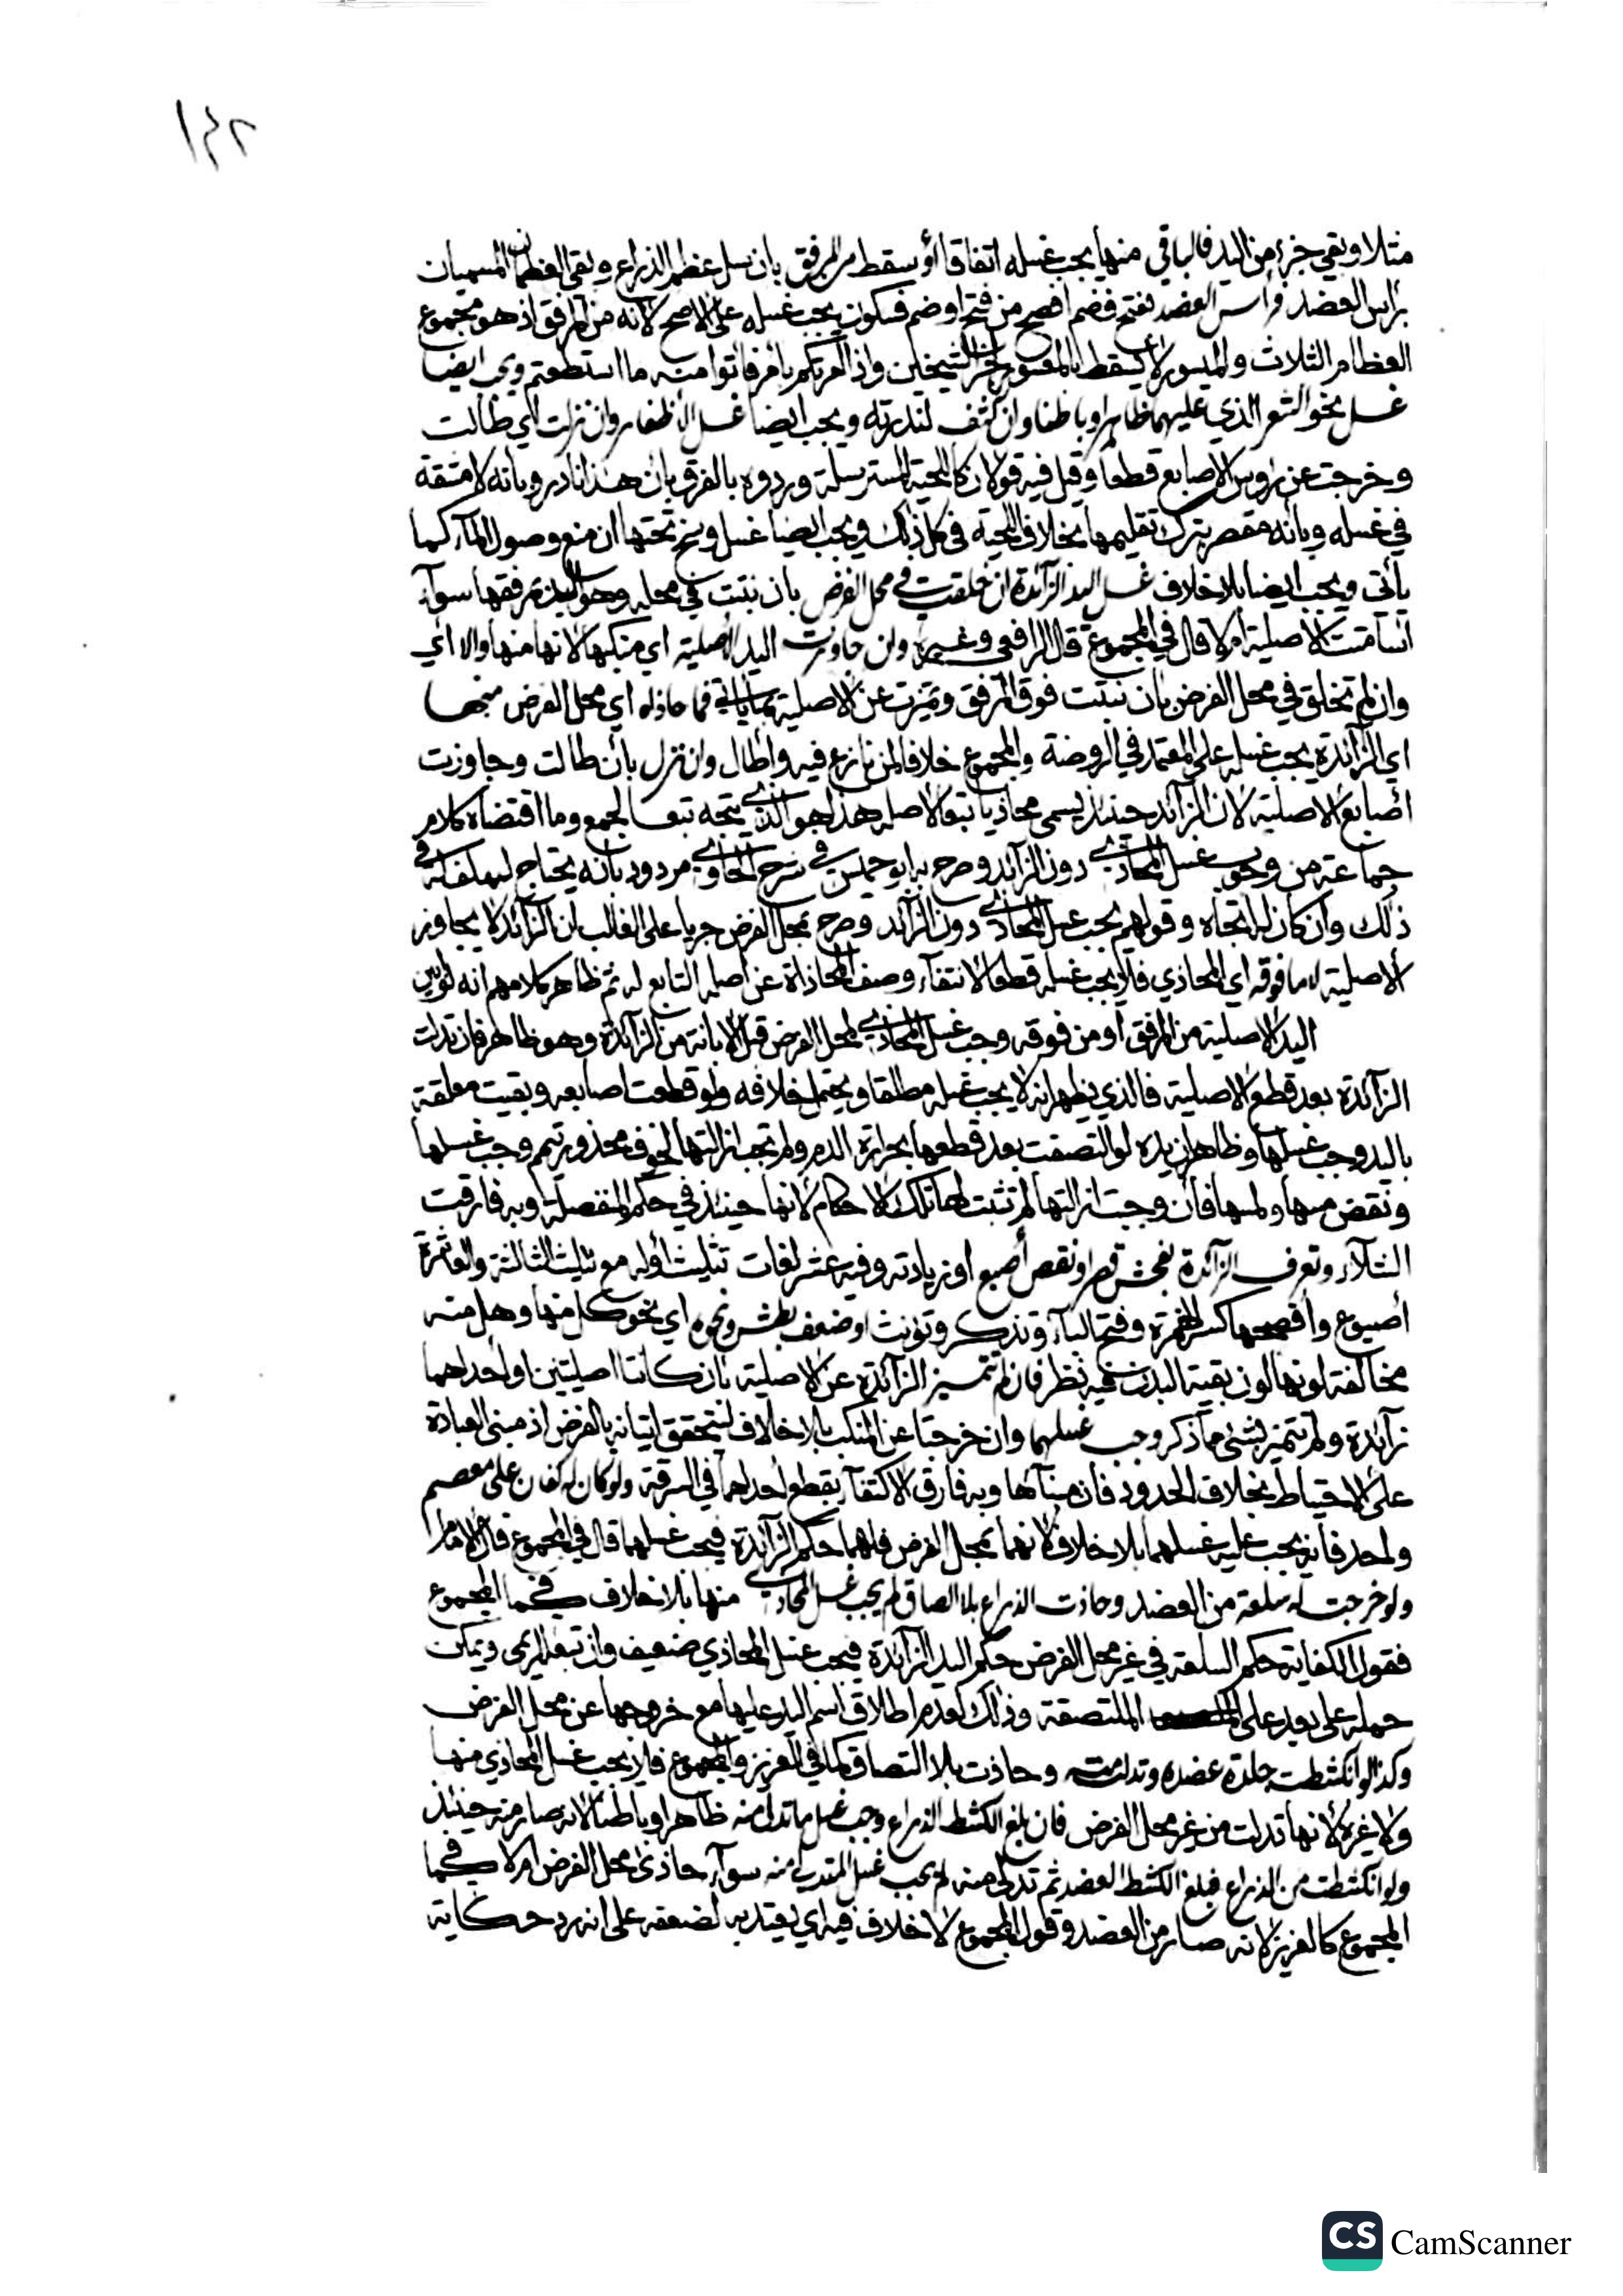 ١٤٢
مثلا وبقي جزء من اليد فالباقي منها يجب غسله اتفاقا أو سقط من المرفق بان سل عظم الذراع وبقي العظمان المسميان
براس العضد فراس العضد بفتح فضم افصح من فتح او ضم فسكون يجب غسله على الاصح لانه من المرفق اذ هو مجموع
العظام الثلاث والميسور لا يسقط بالمعسور لخبر الشيخين واذا امرتكم بامر فأتوا منه ما استطعتم ويجب ايضا
غسل نحو الشعر الذي عليهما ظاهرا وباطنا وان كثف لندرته ويجب ايضا غسل الأظفار وان نزلت اي طالت
وخرجت عن رؤس الاصابع قطعا وقيل فيه قولان كاللحية المسترسلة وردوه بالفرق بان هذا نادر وبانه لا مشقة
في غسله وبانه مقصر بترك تقليمها بخلاف اللحية في كل ذلك ويجب ايضا غسل وسخ تحتها ان منع وصول المآء كما
يأتي ويجب ايضا بلا خلاف غسل اليد الزآئدة ان خلقت في محل الفرض بان نبتت في محله وهو اليد مع مرفقها سوآء
اسامتت الاصلية ام لا قال في المجموع قال الرافعي وغيره وان جاوزت اليد الاصلية اي منكبها لانها منها والا اي
وان لم تخلق في محل الفرض بان نبتت فوق المرفق وتميزت عن الاصلية بما ياتي فما حاذاه اي محل الفرض منها
اي الزآئدة يجب غسله على المعتمد في الروضة والمجموع خلافا لمن نازع فيه واطال وان نزل بأن طالت وجاوزت
أصابع الاصلية لان الزآئد حينئذ يسمى محاذيا تبعا لاصله هذا هو الذي يتجه تبعا لجمع وما اقتضاه كلام
جماعة من وجوب غسل المحاذي دون الزآئد وصرح به ابو حميش في شرح الحاوي مردود بانه يحتاج لسلف له في
ذلك وان كان له اتجاه وقولهم يجب غسل المحاذي دون الزآئد وصرح بمحل الفرض جريا على الغالب ان الزآئد لا يجاوز
الاصلية لا ما فوقه اي المحاذي فلا يجب غسله قطعا لانتفآء وصف المحاذاة عن اصله التابع له ثم ظاهر كلامهم انه لو ابين
اليد الاصلية من المرفق او من فوقه وجب غسل المحاذي لمحل الفرض قبل الابانة من الزآئدة وهو ظاهر فان تدلت
الزآئدة بعد قطع الاصلية فالذي يظهر انه لا يجب غسله مطلقا ويحتمل خلافه ولو قطعت اصابعه وبقيت معلقة
باليد وجب غسلها وظاهر ان يده لو التصقت بعد قطعها بحرارة الدم ولم تجب ازالتها لخوف محذور تيمم وجب غسلها
ونقض مسها ولمسها فان وجبت ازالتها لم تثبت لها تلك الاحكام لانها حينئذ في حكم المنفصلة وبه فارقت
الشلآء وتعرف الزآئدة بفحش قصر او نقص أصبع او زيادته وفيه عشر لغات تثليث أوله مع تثليث الثالثة والعاشرة
أصبوع وأفصحها كسر الهمزة وفتح البآء وتذكر وتؤنث او ضعف بطش ونحوه اي نحو كل منها وهل منه
مخالفة لونها لون بقية البدن فيه نظر فان لم تتميز الزآئدة عن الاصلية بان كانتا اصليتين او احداهما
زآئدة ولم تتميز بشئ مما ذكر وجب غسلهما وان خرجتا عن المنكب بلا خلاف ليتحقق إتيانه بالفرض اذ مبنى العبادة
على الاحتياط بخلاف الحدود فان مبناها وبه فارق الاكتفآء بقطع احداهما في السرقة ولو كان له كفان على معصم
واحد فانه يجب عليه غسلهما بلا خلاف لانهما بمحل الفرض فلهما حكم الزآئدة فيجب غسلهما قال في المجموع قال الامام
ولو خرجت له سلعة من العضد وحاذت الذراع بلا الصاق لم يجب غسل المحاذي منها بلا خلاف كما في المجموع
فقول الكفاية حكم السلعة في غير محل الفرض حكم اليد الزآئدة فيجب غسل المحاذي ضعيف وان تبعه الريمي ويمكن
حمله على بعد على الملتصقة وذلك لعدم اطلاق اسم اليد عليها مع خروجها عن محل الفرض
وكذا لو انكشطت جلدة عضده وتدلت وحاذت بلا التصاق كما في العزيز والمجموع فلا يجب غسل المحاذي منها
ولا غيره لانها تدلت من غير محل الفرض فان بلغ الكشط الذراع وجب غسل ما تدلى منه ظاهرا وباطنا لانه صار منه حينئذ
ولو انكشطت من الذراع فبلغ الكشط العضد ثم تدلى منه لم يجب غسل المتدلي منه سوآء حاذى محل الفرض ام لا كما في
المجموع كالعزيز لانه صار من العضد وقول المجموع لا خلاف فيه اي يعتد به لضعفه على انه رد حكاية
CS CamScanner